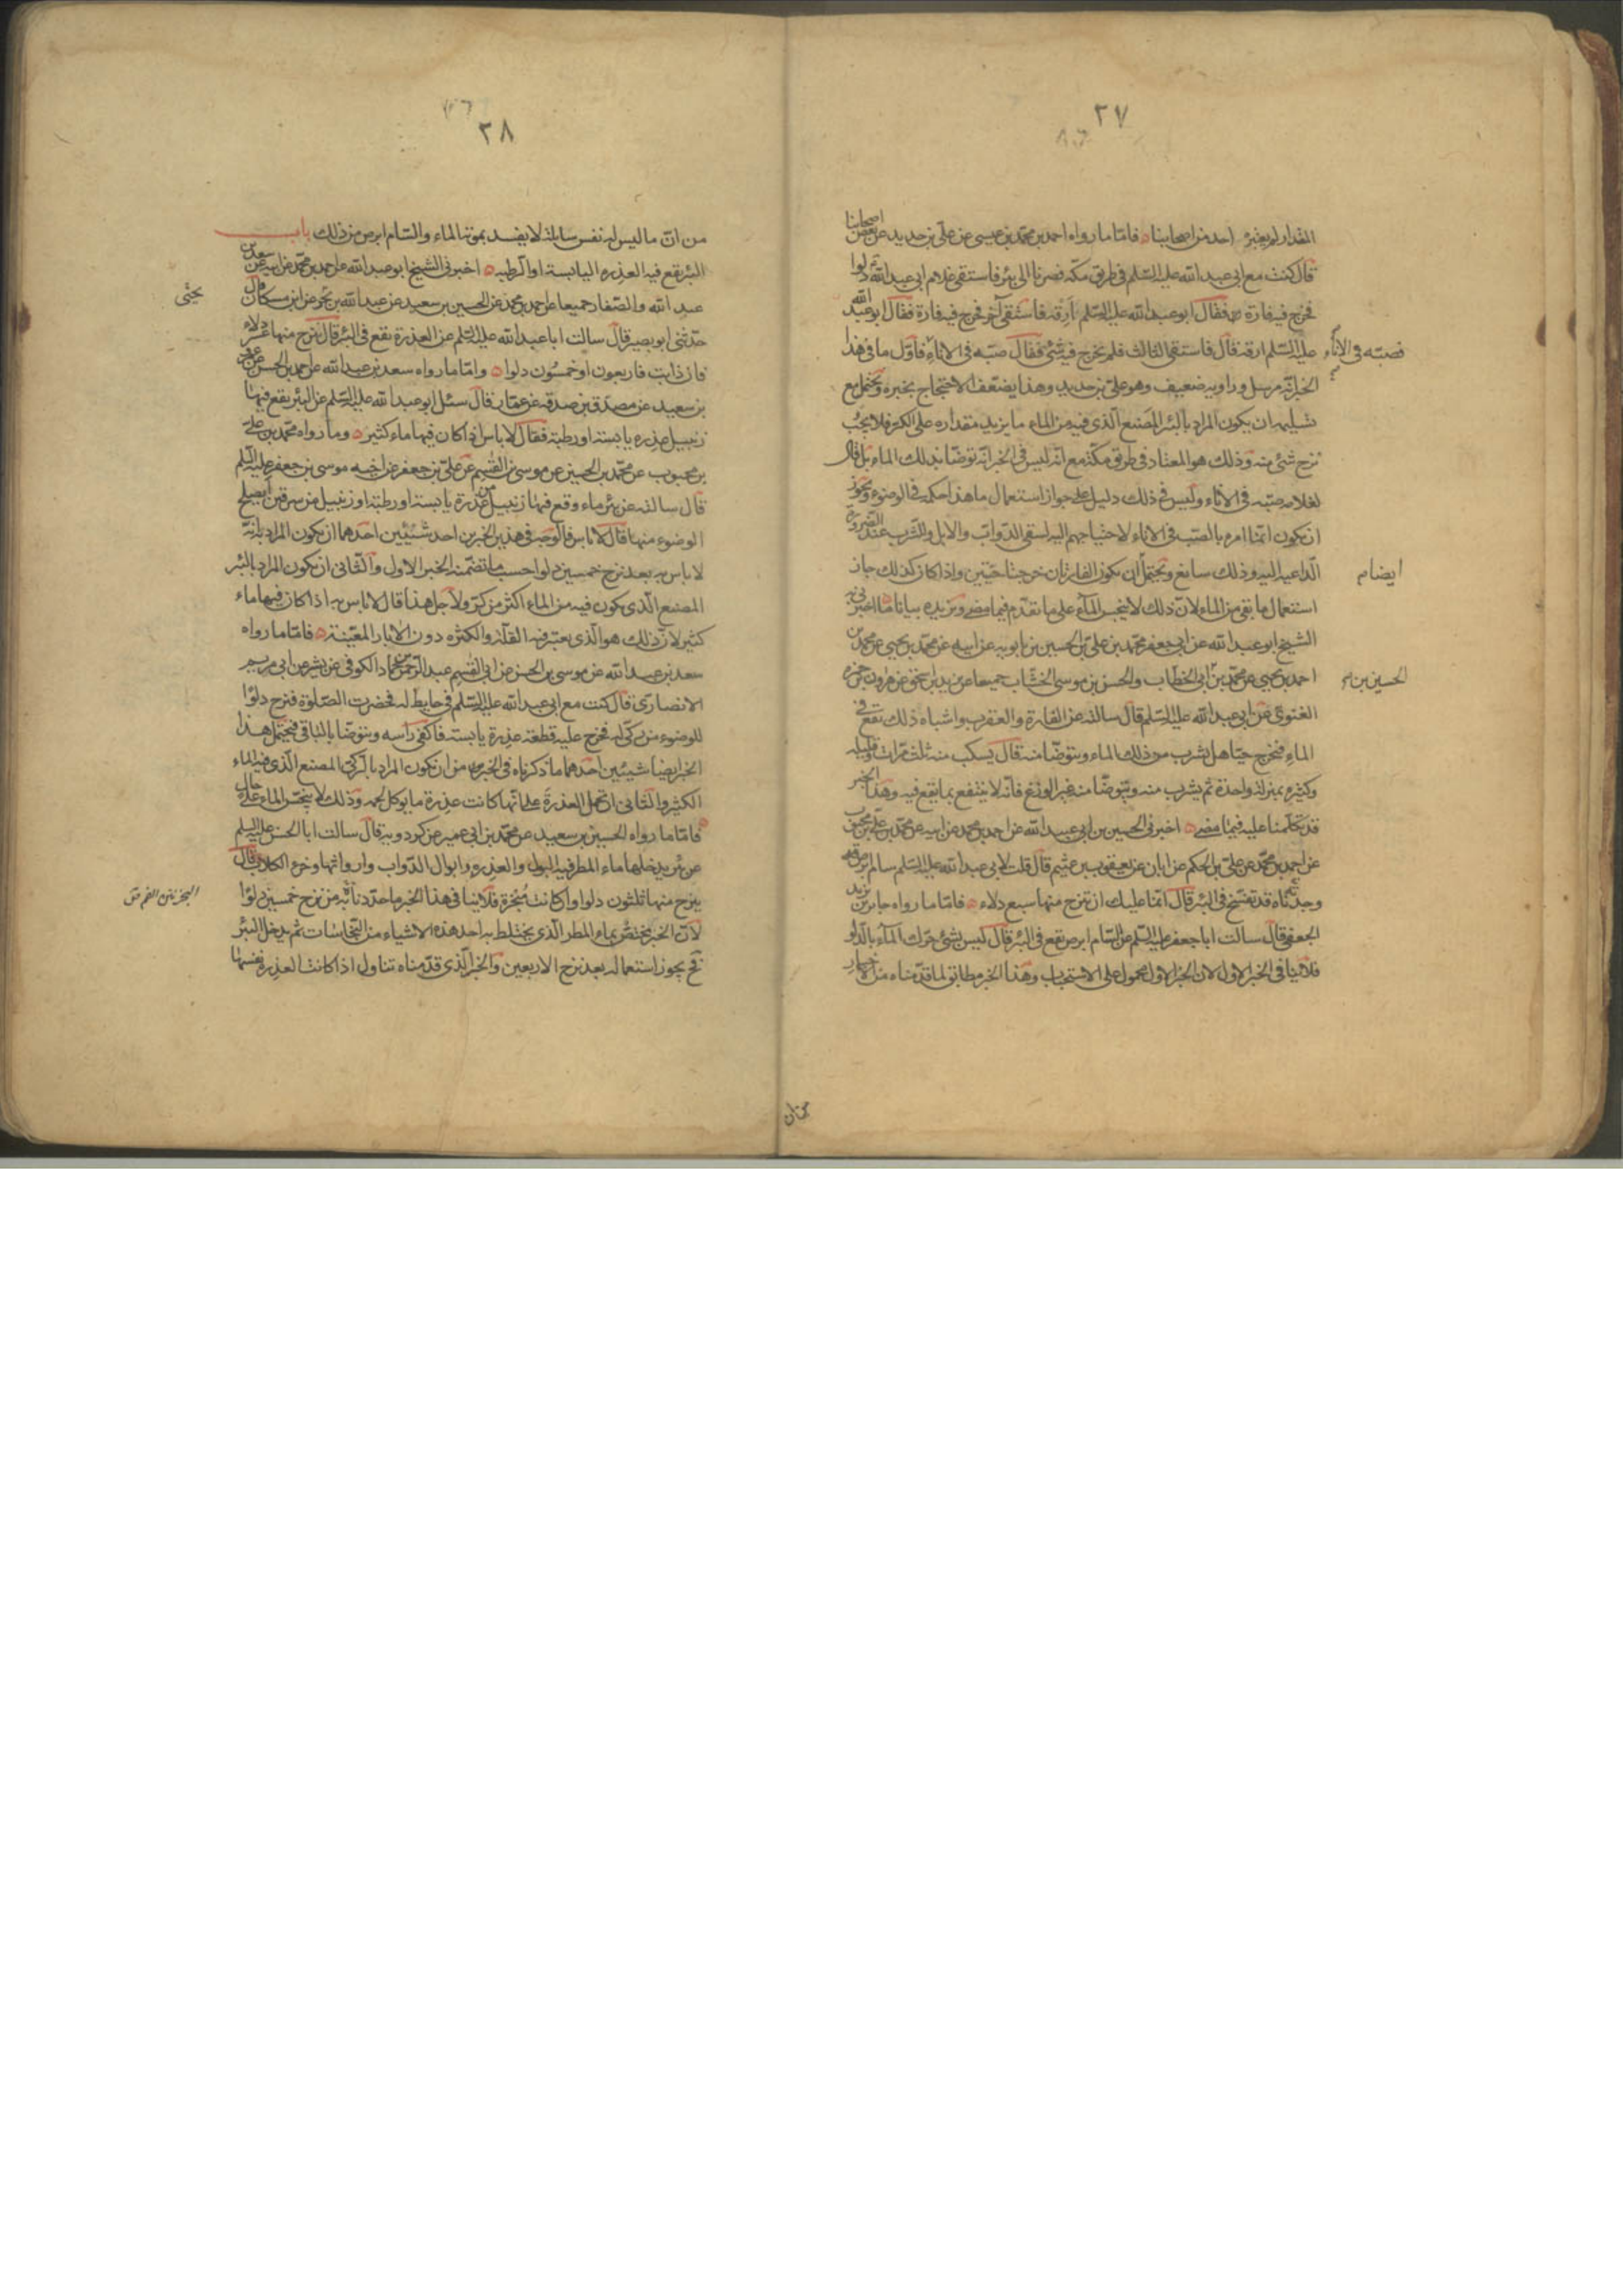 ٢٧
المقدار لم يعتبره احد من اصحابنا فامّا ما رواه احمد بن محمّد بن عيسى عن علىّ بن حديد عن بعض اصحابنا
قال كنت مع ابى عبد الله عليه السّلم فى طريق مكّة فصرنا الى بئر فاستقى غلام ابى عبد الله دلوا
فخرج فيه فارة فقال ابو عبد الله عليه السّلم ارقه فاستقى آخر فخرج فيه فارة فقال ابو عبد الله
عليه السّلم ارقه قال فاستقى الثالث فلم يخرج فيه شئ فقال صبّه فى الاناء فاوّل ما فى هذا
فصبّه فى الاناء
الخبر انّه مرسل وراويه ضعيف وهو علىّ بن حديد وهذا يضعّف الاحتجاج بخبره ويحتمل مع
تسليمه ان يكون المراد بالبئر المصنع الّذى فيه من الماء ما يزيد مقداره على الكر فلا يجب
نزح شئ منه وذلك هو المعتاد فى طريق مكّة مع انّه ليس فى الخبر انّه توضّا بذلك الماء بل قال
لغلامه صبّه فى الاناء وليس فى ذلك دليل على جواز استعمال ما هذا حكمه فى الوضوء ويجوز
ان يكون انّما امره بالصّب فى الاناء لاحتياجهم اليه لسقى الدّوابّ والابل والشّرب عند الضّرورة
الدّاعية اليه وذلك سائغ ويحتمل ان يكون الفارتان خرجتا حيّتين واذا كان كذلك جاز
ايضام
استعمال ما بقى من الماء لانّ ذلك لا ينجس الماء على ما تقدّم فيما مضى ويزيده بيانا ما اخبرنى به
الشيخ ابو عبد الله عن ابى جعفر محمّد بن علىّ بن الحسين بن بابويه عن ابيه عن محمّد بن يحيى عن محمّد بن
احمد بن يحيى عن محمّد بن ابى الخطّاب والحسن بن موسى الخشّاب جميعا عن يزيد بن اسحق عن هرون بن حمزة
الحسين بن
الغنوىّ عن ابى عبد الله عليه السّلم قال سالته عن الفارة والعقرب واشباه ذلك تقع فى
الماء فيخرج حيّا هل يشرب من ذلك الماء ويتوضّا منه قال يسكب منه ثلث مرّات وقليله
وكثيره بمنزلة واحدة ثم يشرب منه ويتوضّا منه غير الوزغ فانّه لا ينتفع بما يقع فيه وهذا الخبر
قد تكلّمنا عليه فيما مضى اخبرنى الحسين بن عبيد الله عن احمد بن محمّد عن ابيه عن محمّد بن علىّ بن محبوب
عن احمد بن محمّد عن علىّ بن الحكم عن ابان عن يعقوب بن عثيم قال قلت لابى عبد الله عليه السّلم سام ابرص
وجدناه قد تفسّخ فى البئر قال انّما عليك ان تنزح منها سبع دلاء فامّا ما رواه جابر بن يزيد
الجعفى قال سالت ابا جعفر عليه السّلم عن السّام ابرص تقع فى البئر قال ليس بشئ حرّك الماء بالدّلو
فلا ينافى الخبر الاول لان الخبر الاول محمول على الاستحباب وهذا الخبر مطابق لما قدّمناه من الاخبار
٢٨
من انّ ما ليس له نفس سايلة لا يفسد بموته الماء والسّام ابرص من ذلك باب
البئر تقع فيه العذرة اليابسة او الرّطبة اخبرنى الشيخ ابو عبد الله عن احمد بن محمّد عن ابيه عن سعد بن
عبد الله والصّفار جميعا عن احمد بن محمد عن الحسين بن سعيد عن عبد الله بن بحر عن ابن مسكان قال
يحيى
حدّثنى ابو بصير قال سالت ابا عبد الله عليه السّلم عن العذرة تقع فى البئر قال ينزح منها عشر دلاء
فان ذابت فاربعون او خمسون دلوا وامّا ما رواه سعد بن عبد الله عن احمد بن الحسن عن عمرو
بن سعيد عن مصدّق بن صدقة عن عمّار قال سئل ابو عبد الله عليه السّلم عن البئر يقع فيها
زنبيل عذرة يابسة او رطبة فقال لا باس اذا كان فيها ماء كثير وما رواه محمّد بن علىّ
بن محبوب عن محمّد بن الحسين عن موسى بن القسم عن علىّ بن جعفر عن اخيه موسى بن جعفر عليه السّلم
قال سالته عن بئر ماء وقع فيها زنبيل من عذرة يابسة او رطبة او زنبيل من سرقين ايصلح
الوضوء منها قال لا باس فالوجه فى هذين الخبرين احد شيئين احدهما ان يكون المراد بانّه
لا باس به بعد نزح خمسين دلوا حسب ما تضمّنه الخبر الاول والثانى ان يكون المراد بالبئر
المصنع الّذى يكون فيه من الماء اكثر من كرّ ولاجل هذا قال لا باس به اذا كان فيها ماء
كثير لانّ ذلك هو الّذى يعتبر فيه القلّة والكثرة دون الآبار المعيّنة فامّا ما رواه
سعد بن عبد الله عن موسى بن الحسن عن ابى القسم عبد الرّحمن بن حمّاد الكوفى عن بشر عن ابى مريم
الانصارى قال كنت مع ابى عبد الله عليه السّلم فى حايط له فحضرت الصّلوة فنزح دلوا
للوضوء من ركىّ له فخرج عليه قطعة عذرة يابسة فاكفى راسه وتوضّا بالباقى فيحتمل هذا
الخبر ايضا شيئين احدهما ما ذكرناه فى الخبرين من ان يكون المراد بالركىّ المصنع الّذى فيه الماء
الكثير والثانى ان تحمل العذرة على انّها كانت عذرة ما يوكل لحمه وذلك لا ينجّس الماء على حال
فامّا ما رواه الحسين بن سعيد عن محمّد بن ابى عمير عن كردويه قال سالت ابا الحسن عليه السلم
عن بئر يدخلها ماء المطر فيه البول والعذرة وابوال الدّواب وارواثها وخرء الكلاب قال
ينزح منها ثلثون دلوا وان كانت مبخرة فلا ينافى هذا الخبر ما حدّدنا به من نزح خمسين دلوا
لانّ الخبر مختصّ بماء المطر الّذى يختلط به احد هذه الاشياء من النّجاسات ثم يدخل البئر
فح يجوز استعماله بعد نزح الاربعين والخبر الّذى قدّمناه تناول اذا كانت العذرة نفسها